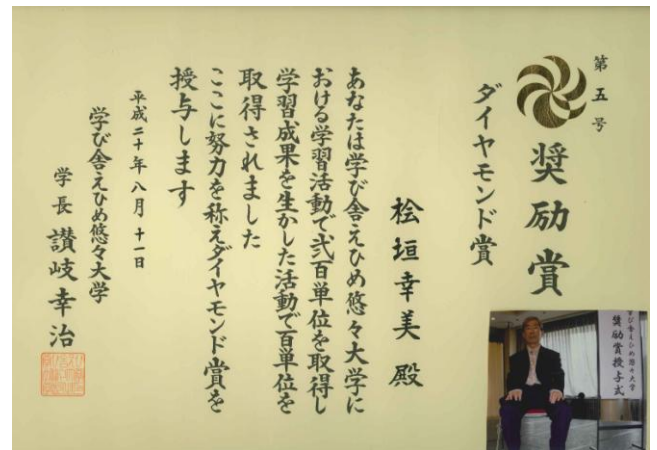 第五号
奨励賞
ダイヤモンド賞
桧垣幸美殿
あなたは学び舎えひめ悠々大学に
おける学習活動で弐百単位を取得し
学習成果を生かした活動で百単位を
取得されました
ここに努力を称えダイヤモンド賞を
授与します
平成二十年八月十一日
学び舎えひめ悠々大学
学長 讃岐幸治
学び舎えひめ悠々大学
奨励賞授与式